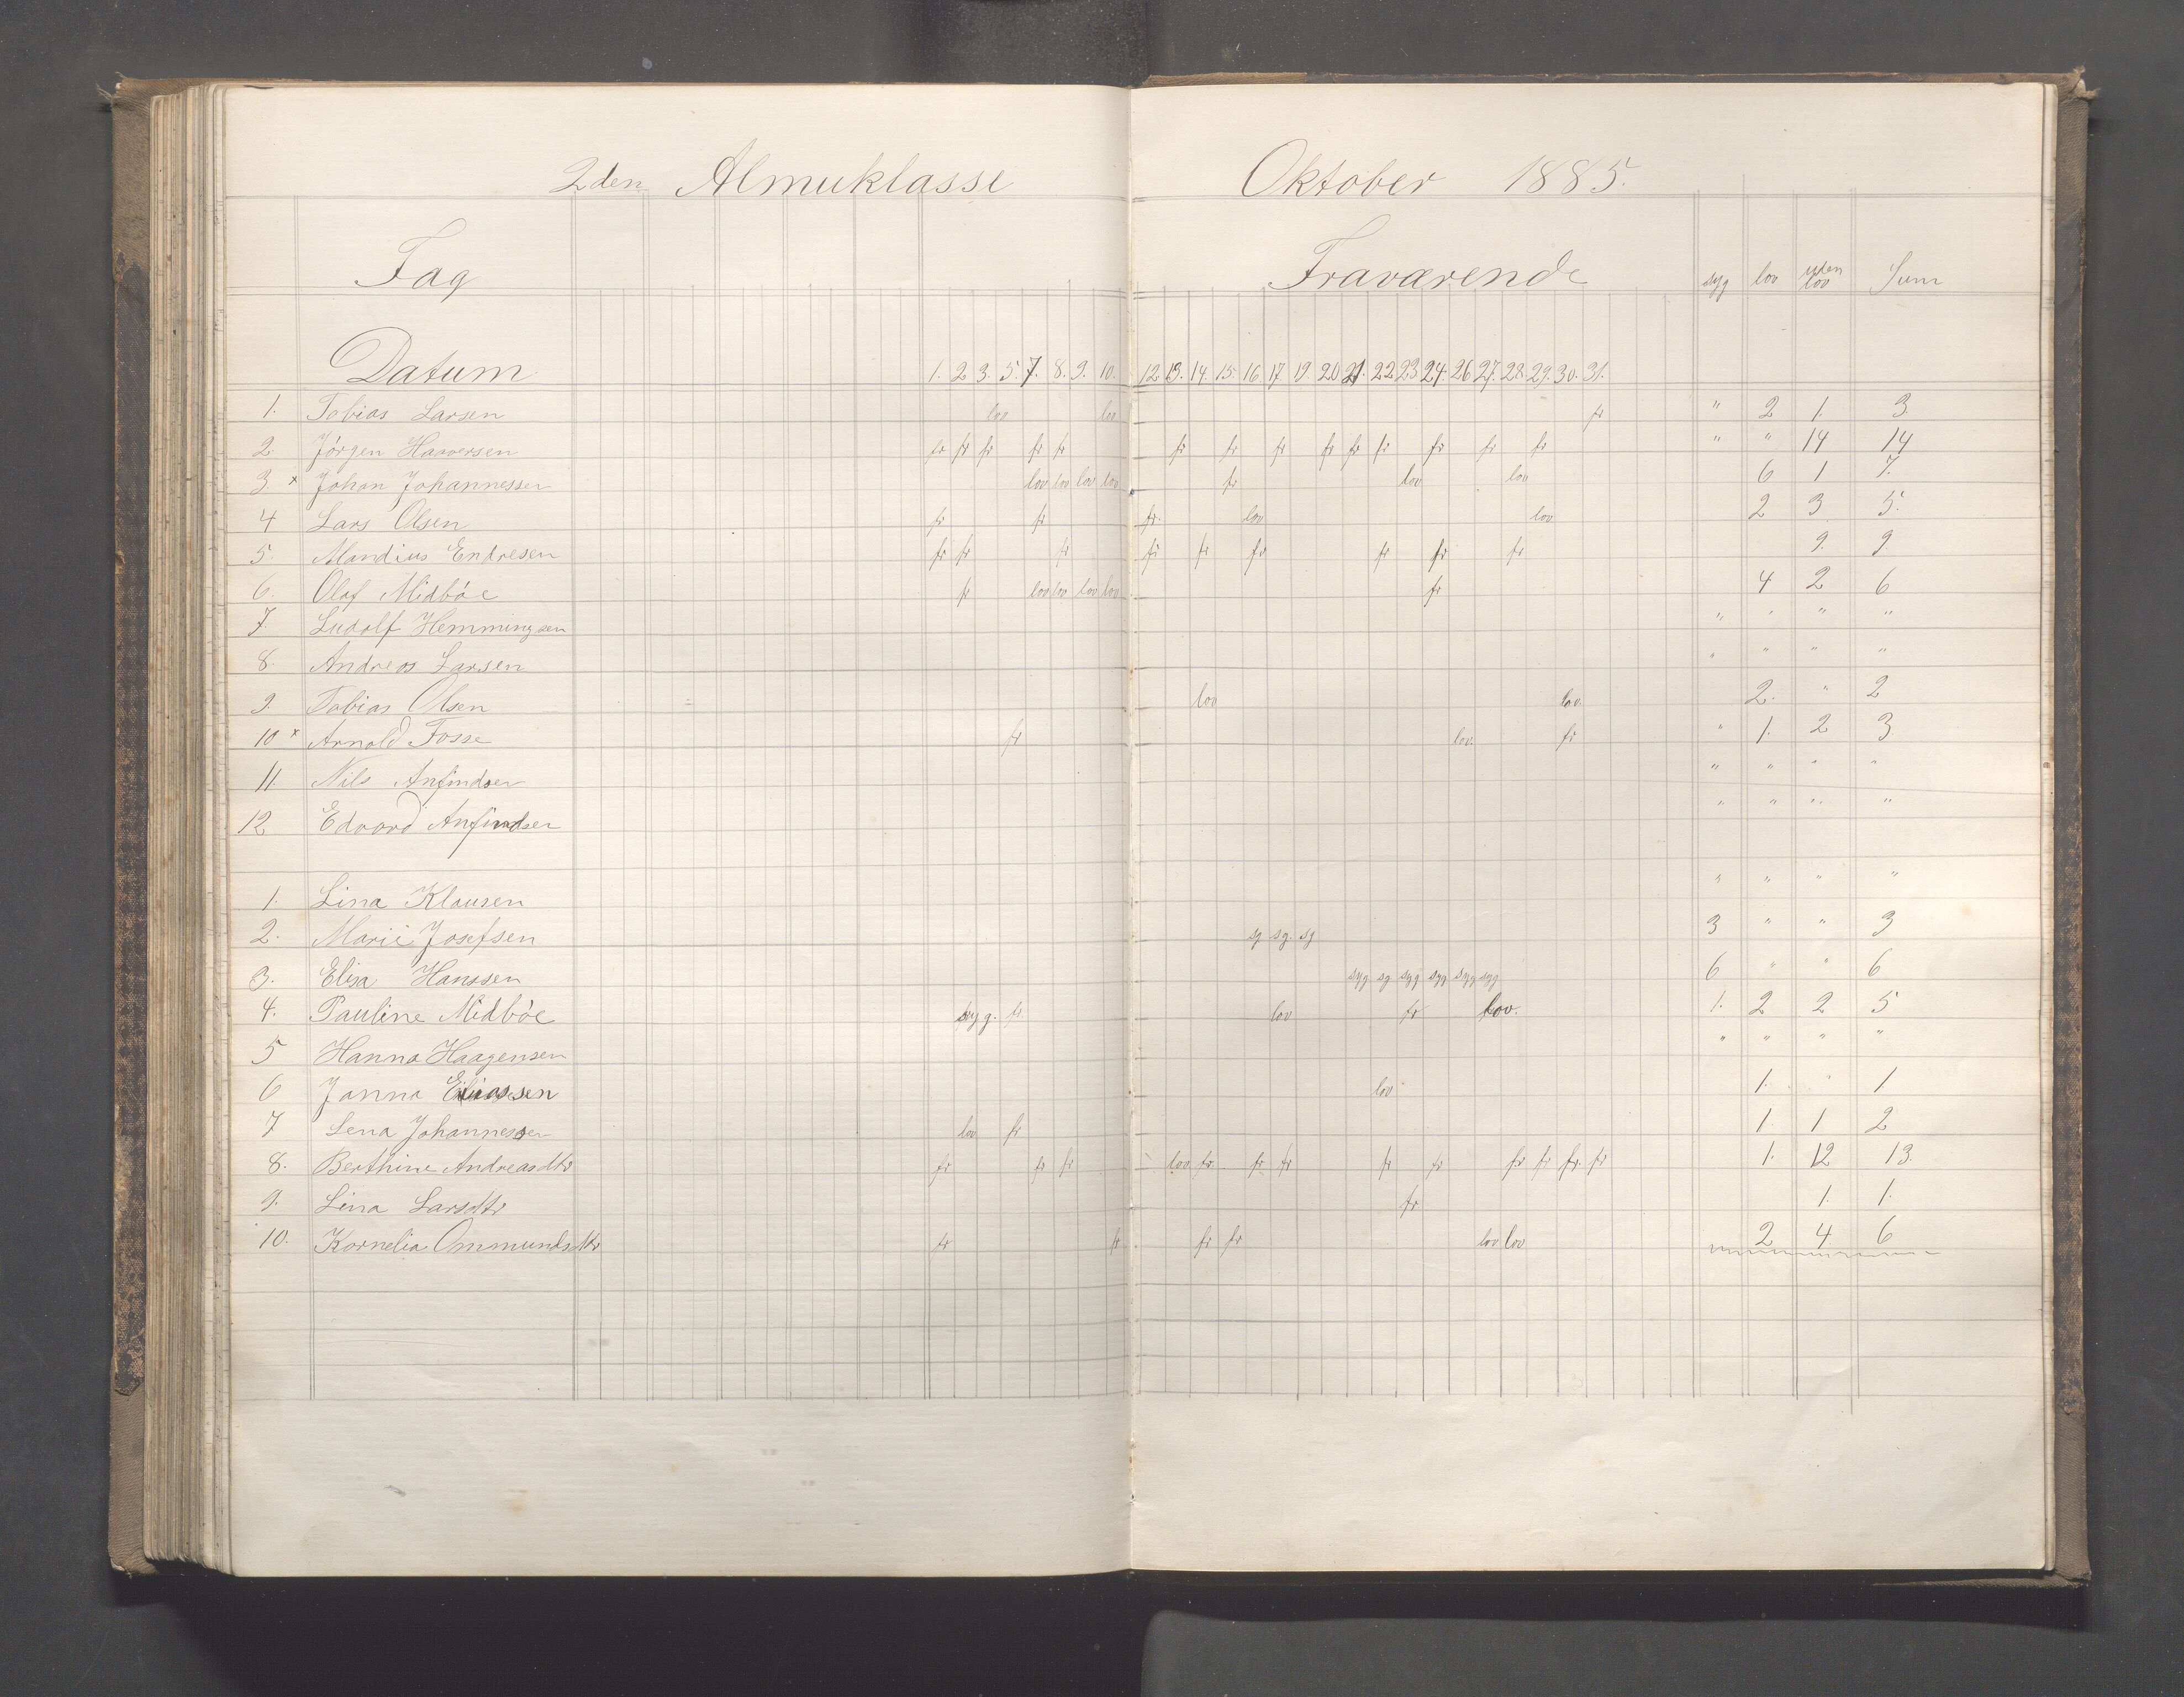 2den Almuklasse Oktober 1885.
Fag Fraværende syg lov uden lov Sum
Datum 1. 2 3. 5. 7. 8. 9. 10. 12 13. 14. 15. 16. 17. 19. 20 21. 22 23 24. 26 27. 28. 29. 30. 31.
1. Tobias Larsen lov lov fr " 2 1. 3.
2. Jörgen Haaversen fr fr fr fr fr fr fr fr fr fr fr fr fr fr " " 14 14
3 x Johan Johannessen lov lov lov lov fr lov lov 6 1 7.
4 Lars Olsen fr fr fr. lov lov 2 3 5.
5. Mandius Endresen fr fr fr fr fr fr fr fr fr 9. 9
6. Olaf Midböe fr lov lov lov lov fr 4 2 6
7. Ludolf Hemmingsen " " " "
8. Andreas Larsen " " " "
9. Tobias Olsen lov lov. 2. " 2
10 x Arnold Fosse fr lov. fr " 1. 2 3
11. Nils Anfindsen " " " "
12 Edvard Anfindsen " " " "
1. Lina Klausen " " " "
2. Marie Josefsen sg sg. sg 3 " " 3
3. Elisa Hanssen syg sg syg syg syg syg 6 " " 6
4. Pauline Midböe syg. fr. lov fr lov. 1. 2 2 5
5 Hanna Haagensen " " " "
6 Janna Eliassen lov 1. " 1
7 Lena Johannessen lov fr 1. 1 2
8. Berthine Andreasdtr fr fr fr lov fr. fr fr fr fr fr fr fr. fr 1. 12 13.
9. Lina Larsdtr fr. 1. 1.
10. Kornelia Ommundsdtr fr fr fr fr lov lov 2 4. 6